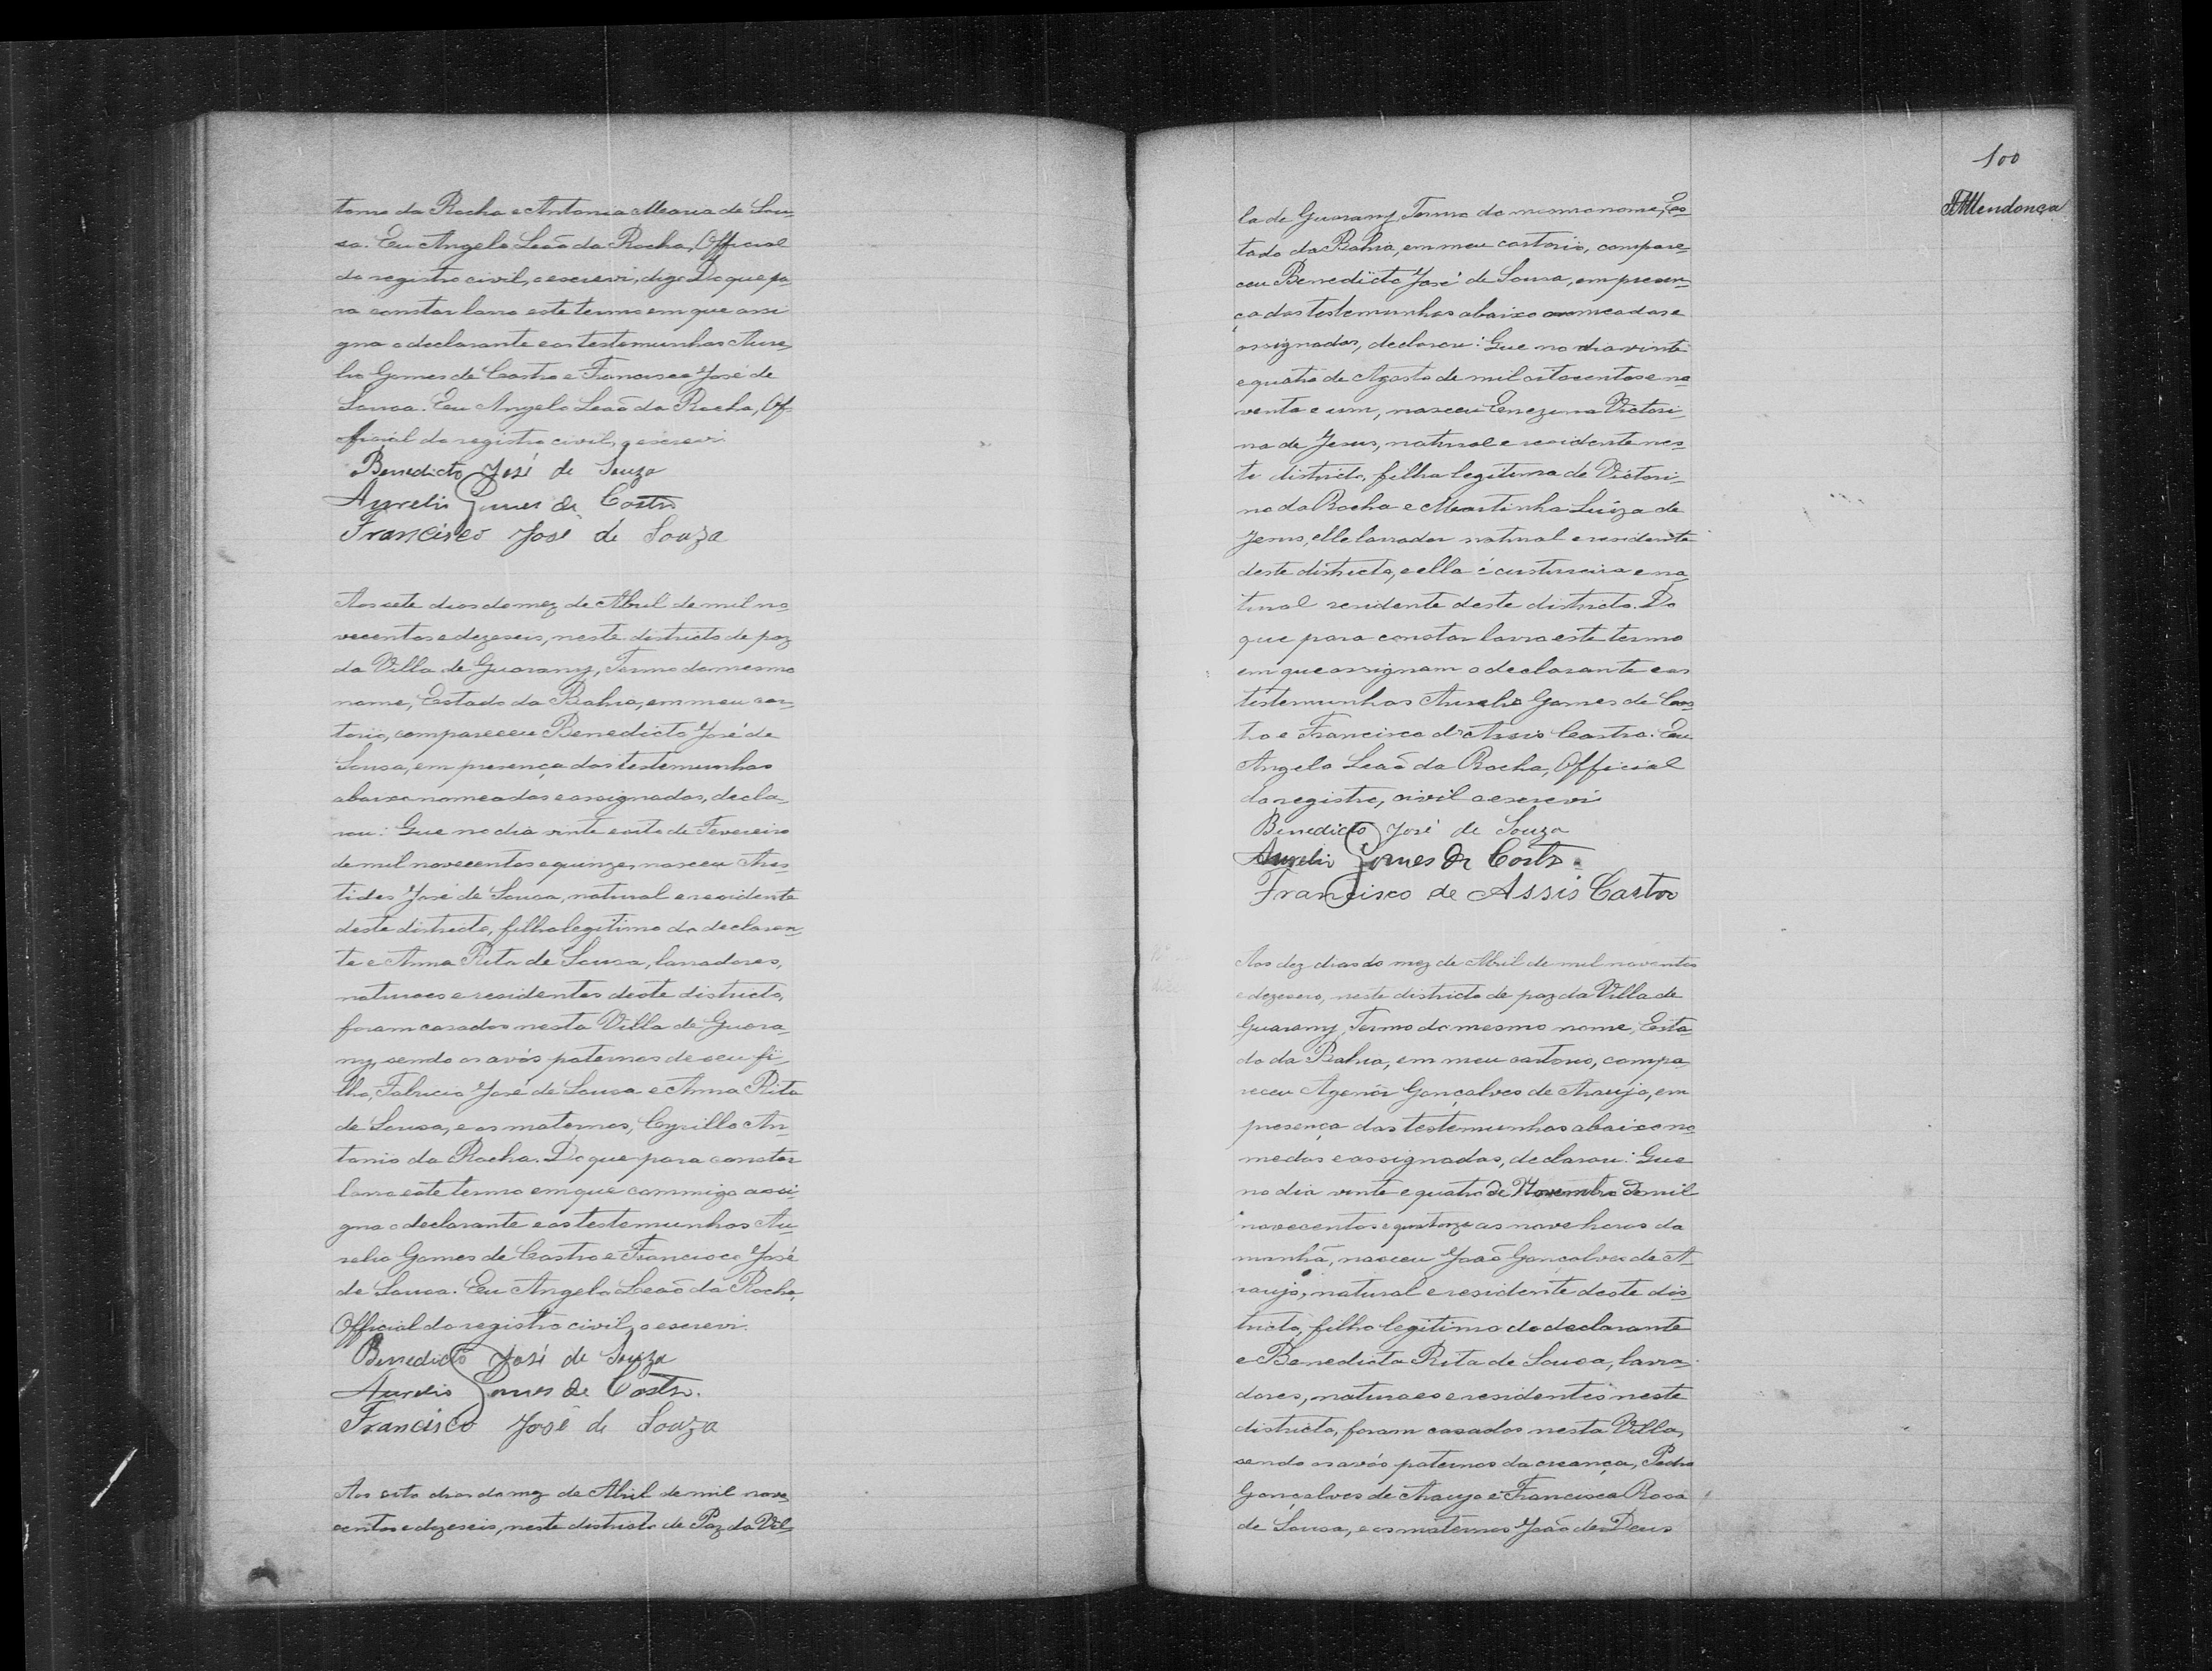 tonio da Rocha e Antonia Maria de Sou-
sa. Eu Angelo Leão da Rocha, Official
do registro civil, o escrevi, digo Do que pa-
ra constar lavro este termo em que assi
gna o declarante e as testemunhas Aure-
lio Gomes de Castro e Francisco José de
Sousa. Eu Angelo Leaõ da Rocha, Of-
ficial do registro civil, o escrevi
Benedicto José de Souza
Aurelio Gomes de Castro
Francisco José de Souza
Aos sete dias do mez de Abril de mil no
vecentos e dezeseis, neste districto de paz
da Villa de Guarany, Termo do mesmo
nome, Estado da Bahia, em meu car-
torio, compareceu Benedicto José de
Sousa, em presença das testemunhas
abaixo nomeadas e assignadas, decla-
rou: Que no dia vinte e oito de Fevereiro
de mil novecentos e quinze, nasceu Aris-
tides José de Sousa, natural e residente
deste districto, filho legitimo do declaran-
te e Anna Rita de Sousa, lavradores,
naturaes e residentes deste districto,
foram casados nesta Villa de Guara-
ny, sendo os avós paternos de seu fi-
lho, Fabricio José de Sousa e Anna Rita
de Sousa, e os maternos, Cyrillo An-
tonio da Rocha. Do que para constar
lavro este termo em que commigo assi-
gna o declarante e as testemunhas Au-
relio Gomes de Castro e Francisco José
de Sousa. Eu Angelo Leaõ da Rocha,
Official do registro civil, o escrevi.
Benedicto José de Souza
Aurelio Gomes de Castro.
Francisco José de Souza
Aos oito dias do mez de Abril de mil nove-
centos e dezeseis, neste districto de Paz da Vil-
100
la de Guarany, Termo do mesmo nome, Es-
tado da Bahia, em meu cartorio, compare-
ceu Benedicto José de Sousa, em presen-
ça das testemunhas abaixo nomeadas e
assignadas, declarou: Que no dia vinte
e quatro de Agosto de mil oitocentos e no-
venta e um, nasceu Victori-
na de Jesus, natural e residente nes-
te districto, filha legitima de Victori-
no da Rocha e Martinha Luiza de
Jesus, elle lavrador natural e residente
deste districto, e ella é custureira e na-
tural residente deste districto. Do
que para constar lavra este termo
em que assignam o declarante e as
testemunhas Aurelio Gomes de Cas-
tro e Francisco d'Assis Castro. Eu
Angelo Leaõ da Rocha, Official
do registro, civil o escrevi
Benedicto José de Souza
Aurelio Gomes de Castro.
Francisco de Assis Castro
Aos dez dias do mez de Abril de mil noventos
e dezeseis, neste districto de paz da Villa de
Guarany, Termo do mesmo nome, Esta-
do da Bahia, em meu cartorio, compa-
receu Agenôr Gonçalves de Araujo, em
presença das testemunhas abaixo no-
medas e assignadas, declarou: Que
no dia vinte e quatro de Novembro de mil
novecentos e quatorze as nove horas da
manhã, nasceu Joaõ Gonçalves de A-
raujo, natural e residente deste dis-
tricto, filho legitimo do declarante
e Benedicta Rita de Sousa, lavra-
dores, naturaes e residentes neste
districto, foram casados nesta Villa,
sendo os avós paternos da creança, Pedro
Gonçalves de Araujo e Francisca Rosa
de Sousa, e os maternos João de Deus